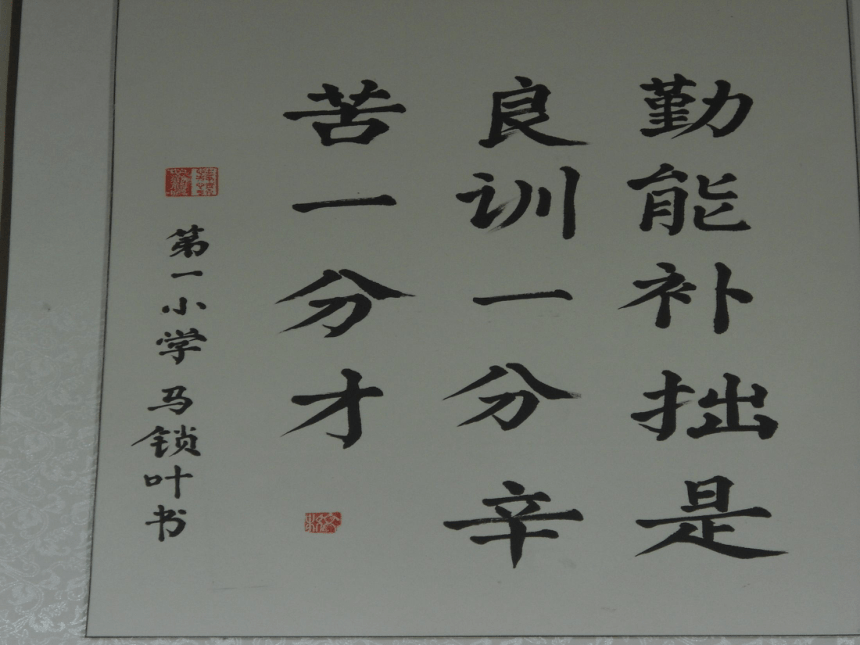 勤能补拙是
良训一分辛
苦一分才
第一小学马锁叶书